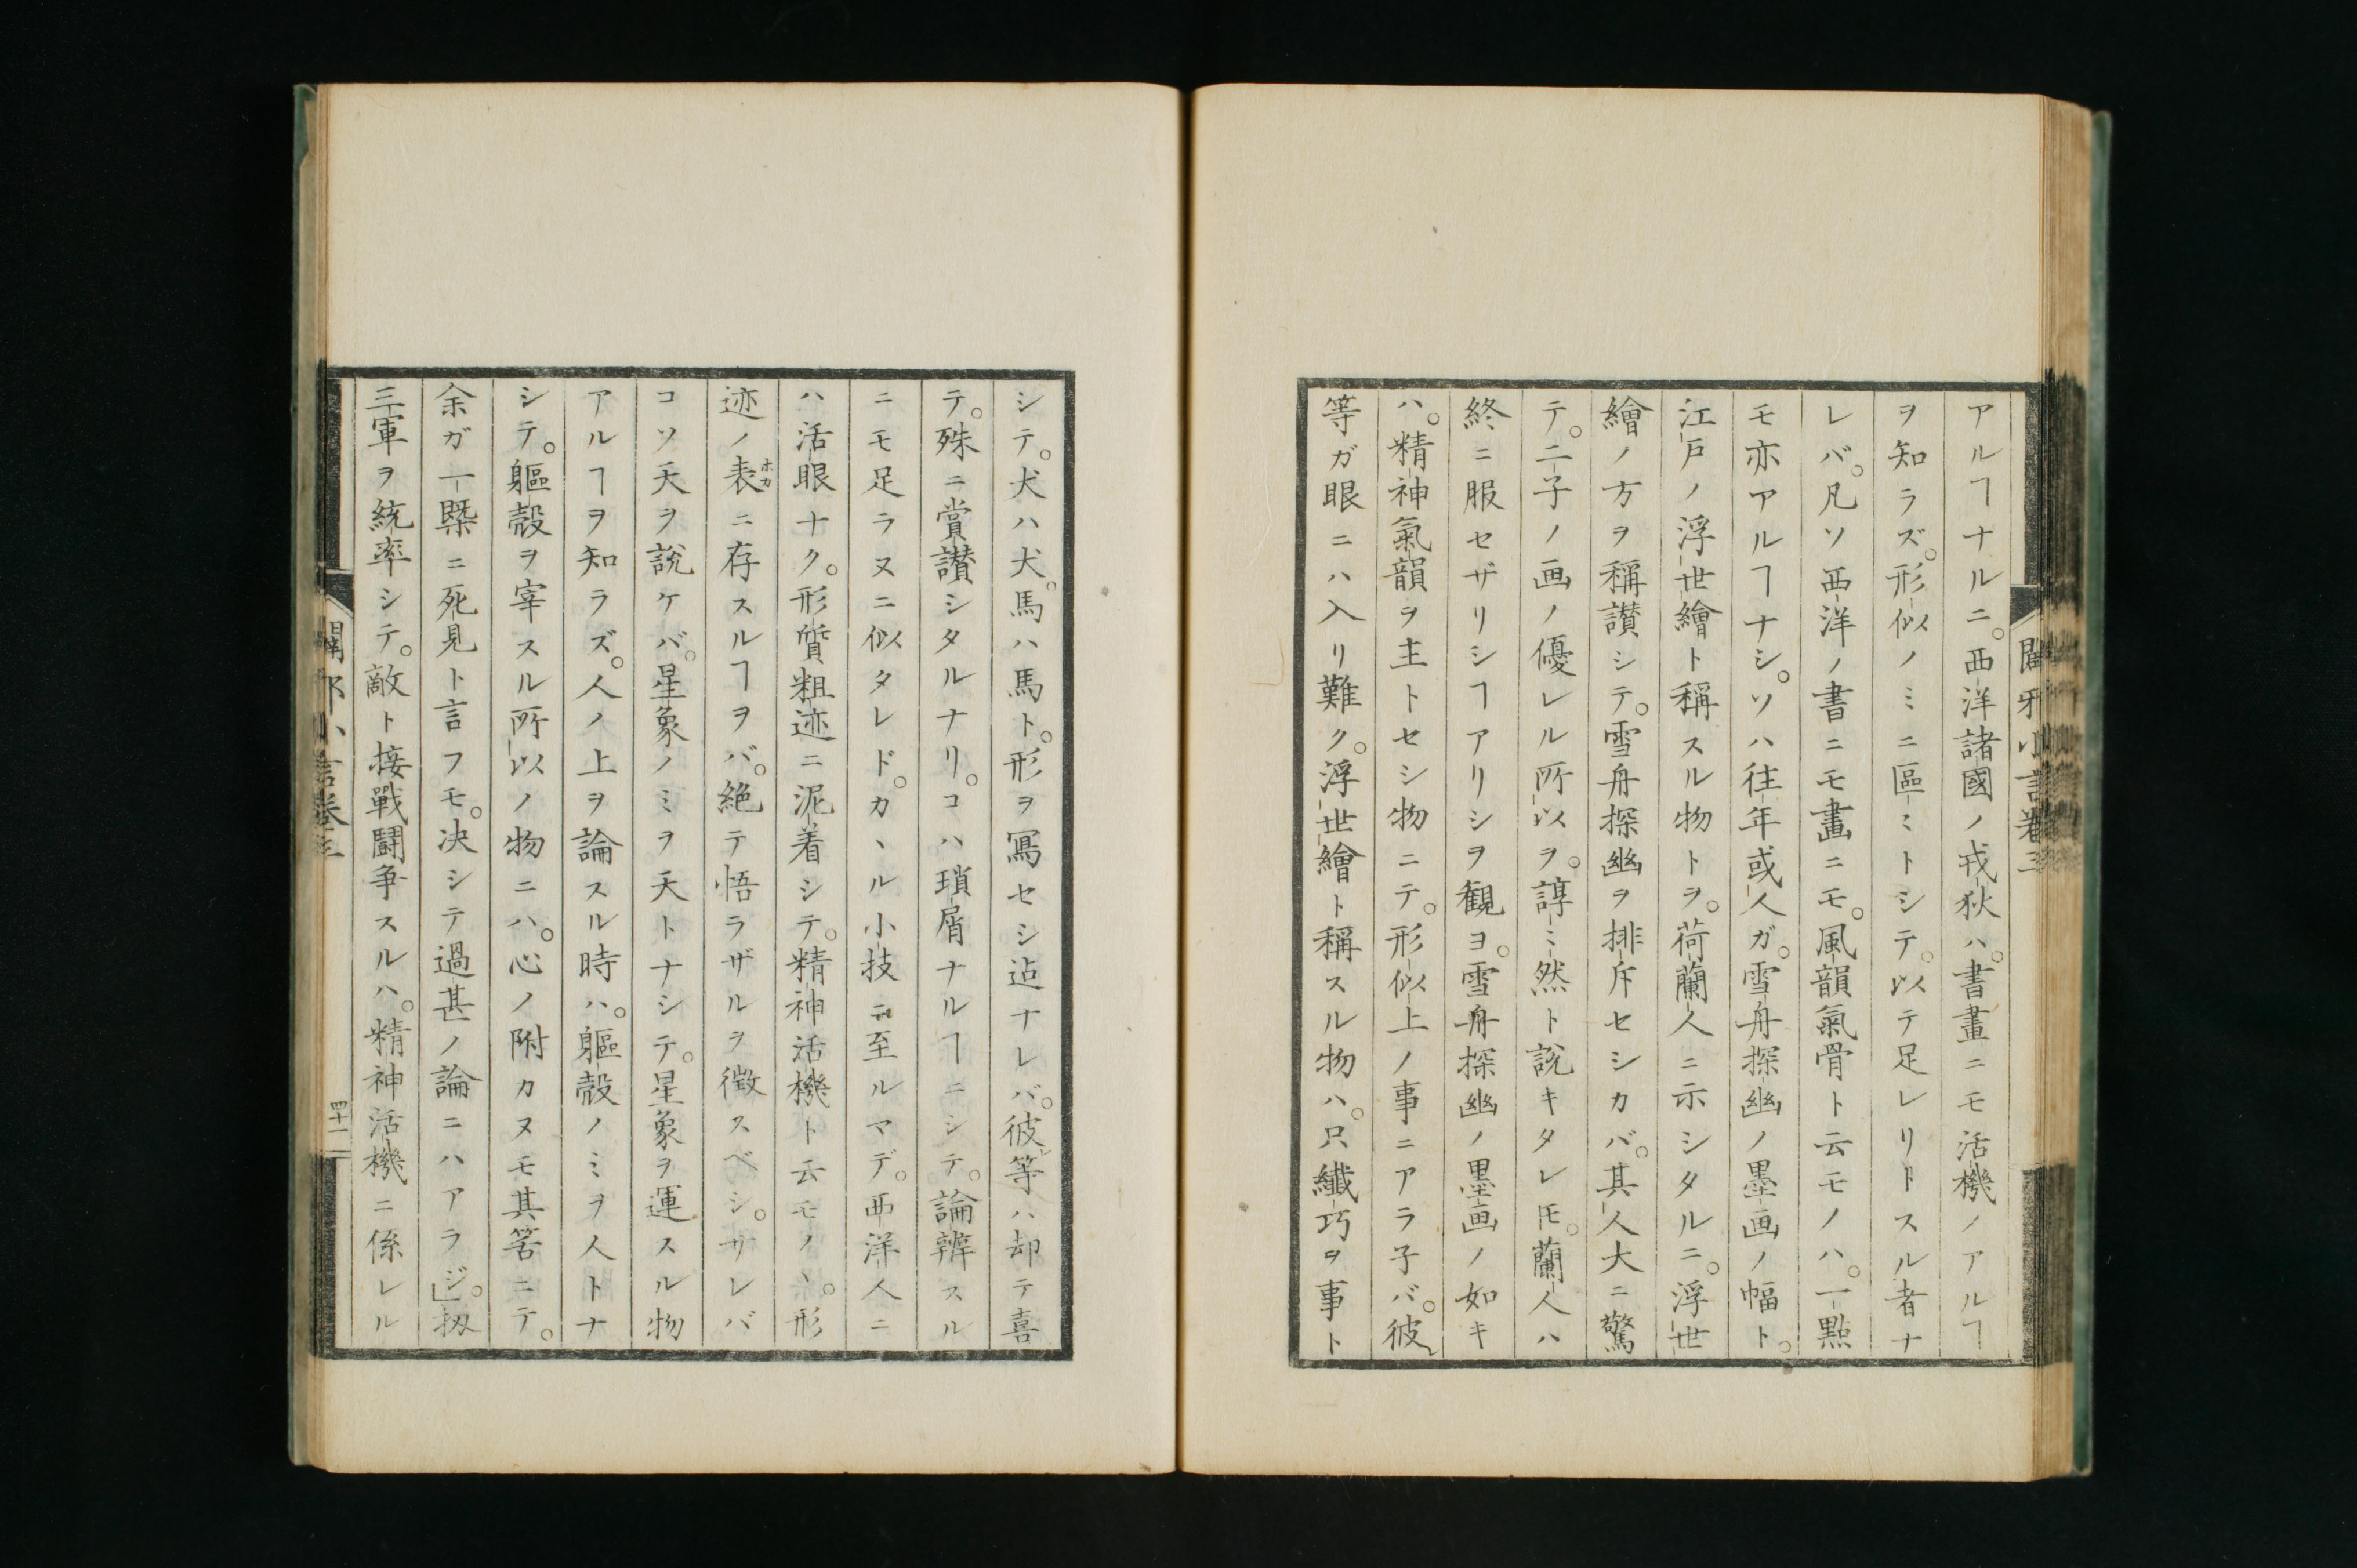 闢邪小言巻三
アルヿナルニ。西洋諸國ノ戎狄ハ。書畫ニモ活機ノアルヿ
ヲ知ラズ。形似ノミニ區〻トシテ。以テ足レリトスル者ナ
レバ。凡ソ西洋ノ書ニモ畫ニモ。風韻氣骨ト云モノハ。一點
モ亦アルヿナシ。ソハ往年或人ガ。雪舟探幽ノ墨画ノ幅ト。
江戸ノ浮世繪ト稱スル物トヲ。荷蘭人ニ示シタルニ。浮世
繪ノ方ヲ稱讃シテ。雪舟探幽ヲ排斥セシカバ。其人大ニ驚
テ。二子ノ画ノ優レル所以ヲ。諄〻然ト説キタレ𪜈。蘭人ハ
終ニ服セザリシヿアリシヲ観ヨ。雪舟探幽ノ墨画ノ如キ
ハ。精神氣韻ヲ主トセシ物ニテ。形似上ノ事ニアラ子バ。彼
等ガ眼ニハ入リ難ク。浮世繪ト稱スル物ハ。只纖巧ヲ事ト
シテ。犬ハ犬。馬ハ馬ト。形ヲ冩セシ迠ナレバ。彼等ハ却テ喜
テ。殊ニ賞讃シタルナリ。コハ瑣屑ナルヿニシテ。論辨スル
ニモ足ラヌニ似タレド。カヽル小技ニ至ルマデ。西洋人ニ
ハ活眼ナク。形質粗迹ニ泥着シテ。精神活機ト云モノヽ。形
迹ノ表ホカニ存スルヿヲバ。絶テ悟ラザルヲ徴スベシ。サレバ
コソ天ヲ説ケバ。星象ノミヲ天トナシテ。星象ヲ運スル物
アルヿヲ知ラズ。人ノ上ヲ論スル時ハ。軀殻ノミヲ人トナ
シテ。軀殻ヲ宰スル所以ノ物ニハ。心ノ附カヌモ其筈ニテ。
余ガ一槩ニ死見ト言フモ。决シテ過甚ノ論ニハアラジ」。扨
三軍ヲ統率シテ。敵ト接戰闘争スルハ。精神活機ニ係レル
闢邪小言巻三
四十一